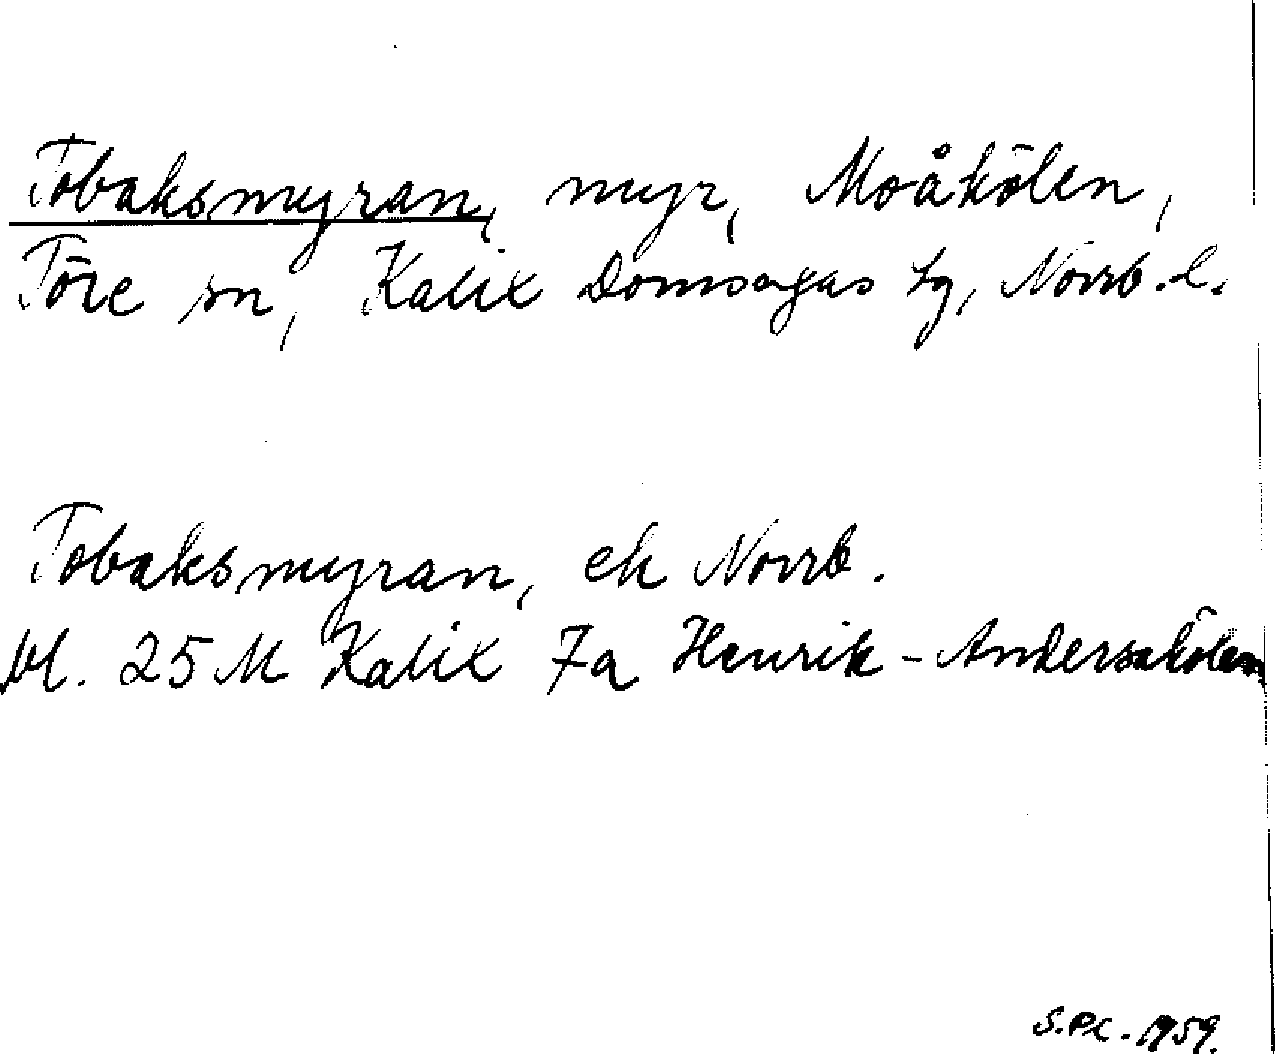 Tobaksmyran, myr, Moåkölen,
Töre sn, Kalix Domsagas tg, Norrb. l.
Tobaksmyran, ek Norrb.
bl. 25 M Kalix 7a Henrik-Anderskölen
S.P.C. 1959.